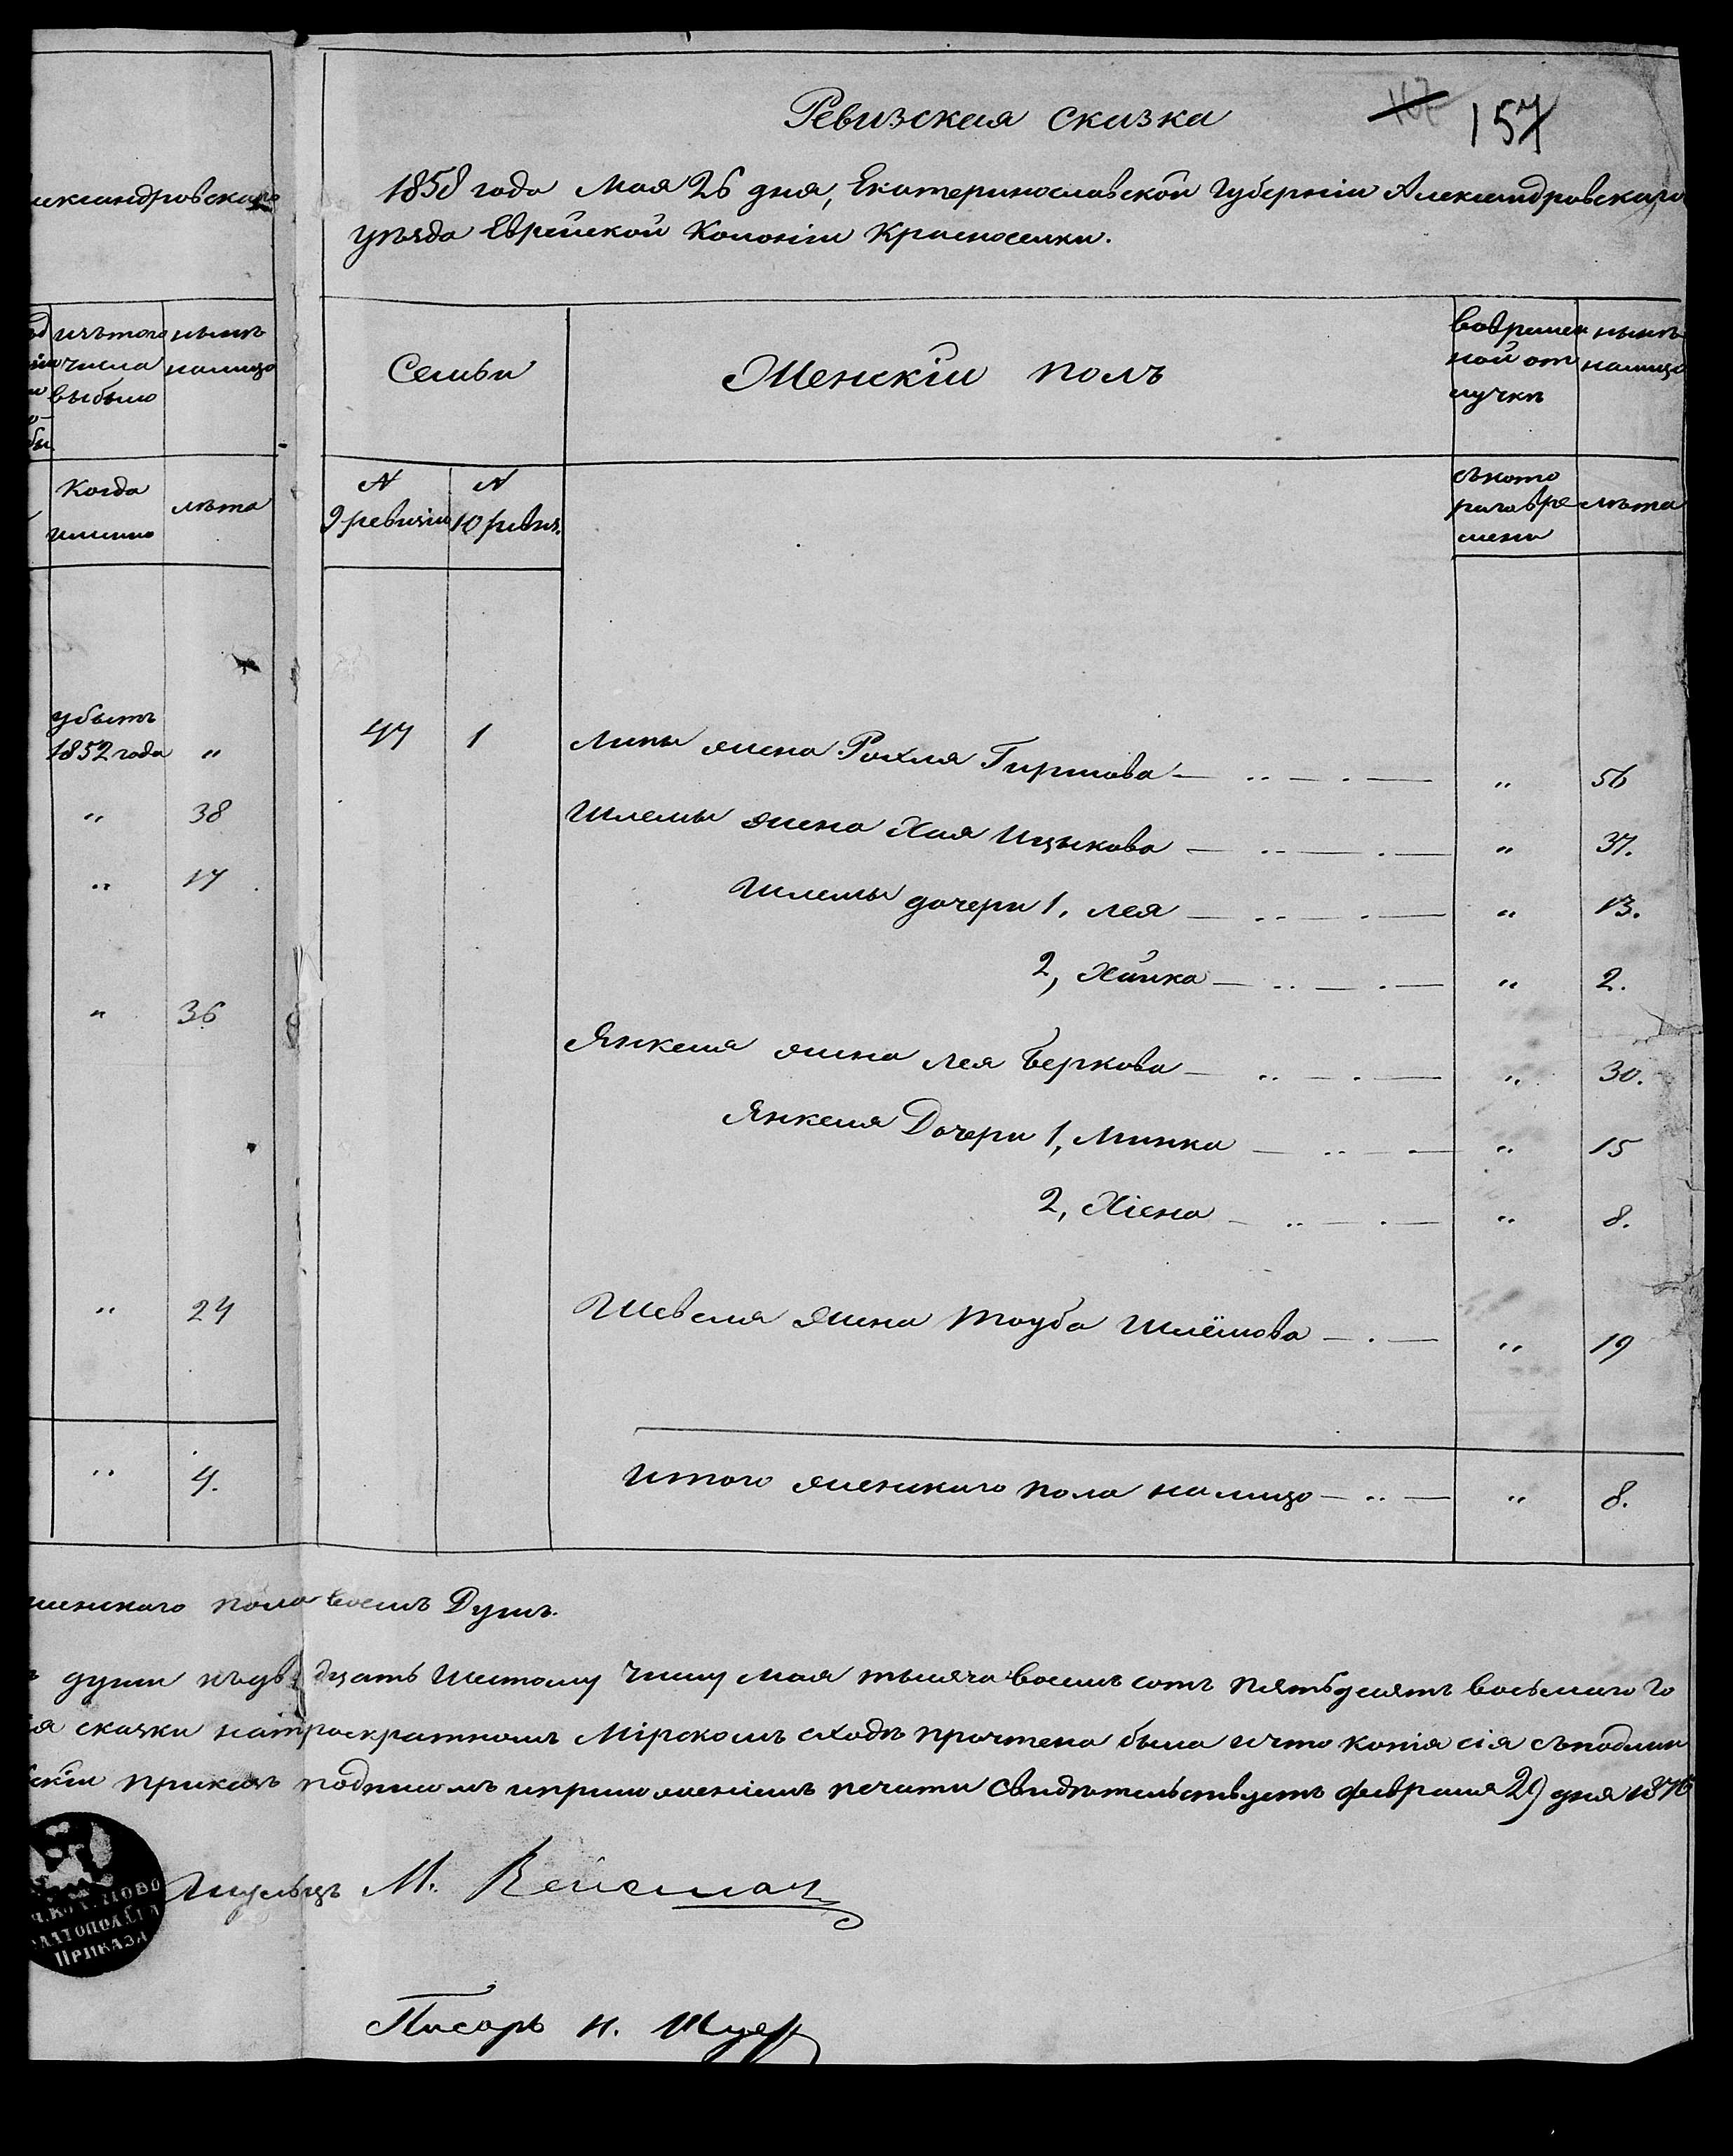 Ревизская сказка
157
1858 года Мая 26 дня, Екатеринославской Губерніи Александровскаго
уѣзда Еврейской Колоніи Красноселки.
лександровскаго
изъ того
числа
выбыло
нынѣ
налицо
Когда
именно
лѣта
Семьи
Женскій полъ
во времен
ной от
лучкѣ
нынѣ
налицо
N
9 ревизіи
N
10 ревиз.
съ кото
раго вре
мени
лѣта
убытъ
1852 года "
47 1 Липы жена Рохля Гиршова " 56
" 38
Шлемы жена Хая Ицькова " 37.
" 17
Шлемы дочери 1, Лея " 13.
2, Хайка " 2.
" 36
Янкеля жена Лея Беркова " 30.
Янкеля Дочери 1, Минка " 15
2, Хіена " 8.
" 24
Шевеля жена Тауба Шлёмова " 19
" 4.
Итого женскаго пола на лицо " 8.
женскаго пола восемь Душъ.
души къ двадцать шестому числу мая тысяча восемь сотъ пятьдесятъ восьмаго го
ія сказки на троекратномъ Мірскомъ сходѣ прочтена была и что копія сія съ подлин
скій приказъ подписомъ и приложеніемъ печати свидѣтельствуетъ февраля 29 дня 1876
НОВО
ЗЛАТОПОЛ
ПРИКАЗА
Шульцъ М.
Писарь И.